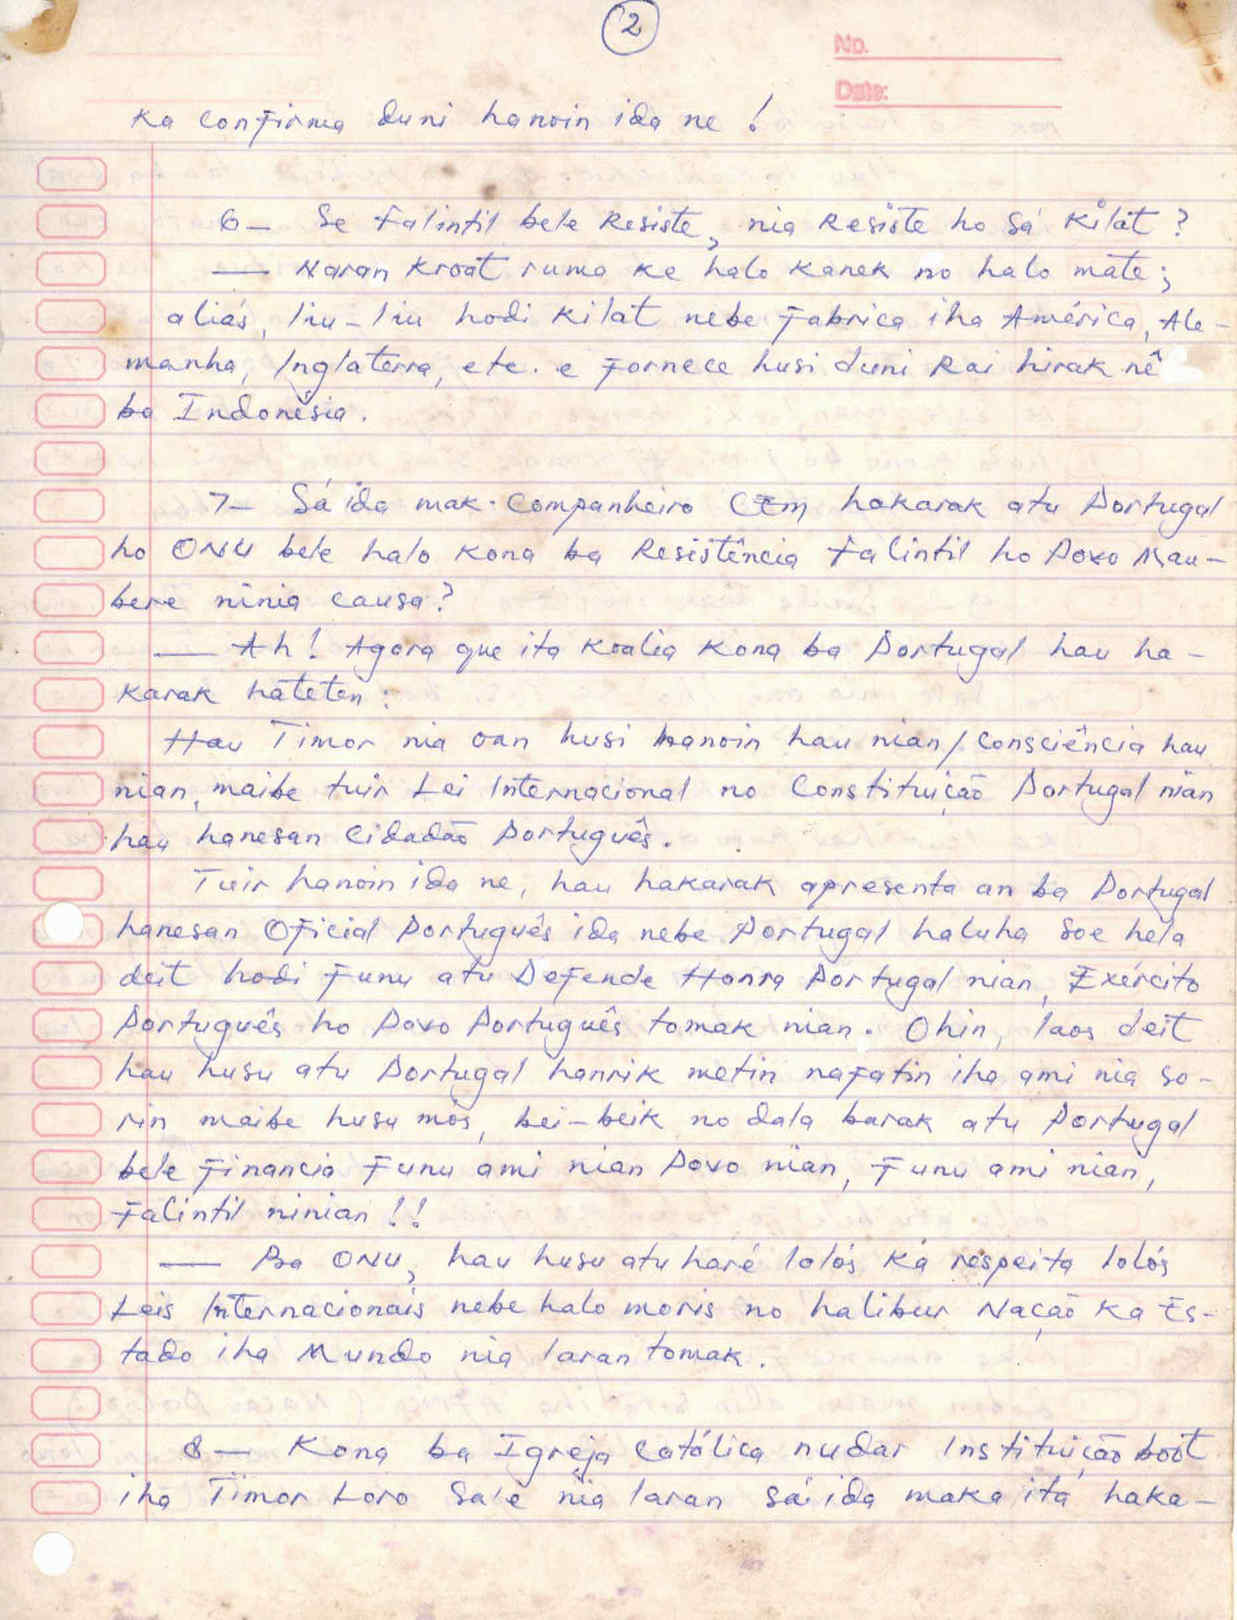 2
No.
Date:
Ka confirma duni hanoin ida ne !
6- Se Falintil bele Resiste, nia Resiste ho Sá Kilat ?
— Naran Kroat ruma Ke halo Kanek no halo mate;
aliás, liu-liu hodi Kilat nebe Fabrica iha América, Ale-
manha, Inglaterra, etc. e Fornece husi duni Rai hirak nê
ba Indonésia.
7- Sá ida mak Companheiro CEm hakarak atu Portugal
ho ONU bele halo Kona ba Resistência Falintil ho Povo Mau-
bere ninia causa?
— Ah! Agora que ita Koalia Kona ba Portugal hau ha-
Karak hateten:
Hau Timor nia oan husi hanoin hau nian/consciência hau
nian, maibe tuir Lei Internacional no Constituição Portugal nian
hau hanesan Cidadão Português.
Tuir hanoin ida ne, hau hakarak apresenta an ba Portugal
hanesan Oficial Português ida nebe Portugal haluha Soe hela
deit hodi Funu atu Defende Honra Portugal nian, Exército
Português ho Povo Português tomak nian. Ohin, laos deit
hau husu atu Portugal hanrik metin nafatin iha ami nia so-
rin maibe husu mós, bei-beik no dala barak atu Portugal
bele Financia Funu ami nian Povo nian, Funu ami nian,
Falintil ninian !!
— Ba ONU, hau husu atu haré lolós Ká respeita lolós
Leis Internacionais nebe halo moris no halibur Nação Ka Es-
tado iha Mundo nia laran tomak.
8- Kona ba Igreja Católica nudar Instituição boot
iha Timor Loro Sa'e nia laran Sá ida maka ita haka-